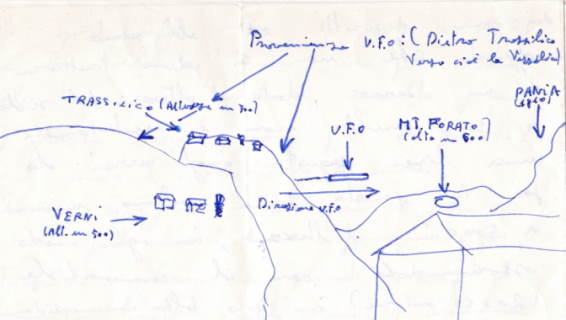 Provenienza U.F.O: (Dietro Trassilico
Verso cioè la Versilia)
TRASSILICO (Altezza m 700)
U.F.O
MT. FORATO
PANIA
Direzione U.F.O
VERNI
(Alt. m 500)